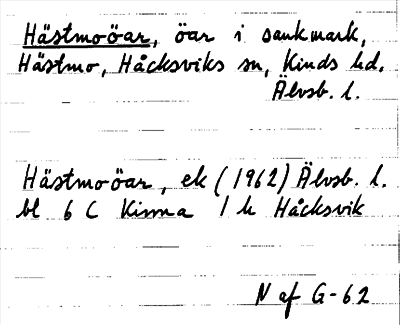 Hästmoöar, öar i sankmark,
Hästmo, Håcksviks sn, Kinds hd.
Älvsb. l.
Hästmoöar, ek (1962) Älvsb. l.
bl 6 C Kinna 1 h Håcksvik
N af G-62